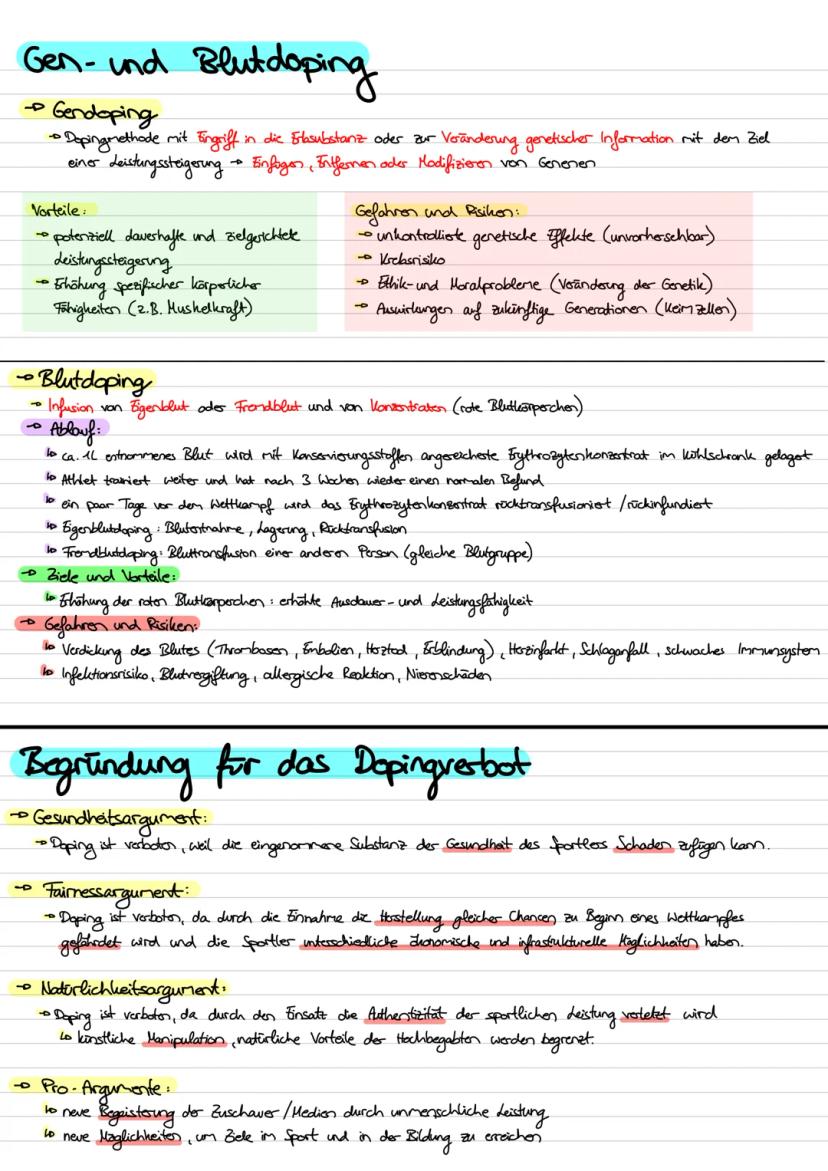 Gen- und Blutdoping
→ Gendoping
→ Dopingmethode mit Eingriff in die Erbsubstanz oder zur Veränderung genetischer Information mit dem Ziel
einer Leistungssteigerung → Einfügen, Entfernen oder Modifizieren von Genenen
Vorteile:
→ potenziell dauerhafte und zielgerichtete
Leistungssteigerung
→ Erhöhung spezifischer körperlicher
Fähigkeiten (z.B. Muskelkraft)
Gefahren und Risiken:
→ unkontrollierte genetische Effekte (unvorhersehbar)
→ Krebsrisiko
→ Ethik- und Moralprobleme (Veränderung der Genetik)
→ Auswirkungen auf zukünftige Generationen (Keimzellen)
→ Blutdoping
→ Infusion von Eigenblut oder Fremdblut und von Konzentraten (rote Blutkörperchen)
→ Ablauf:
↳ ca. 1L entnommenes Blut wird mit Konservierungsstoffen angereicherte Erythrozytenkonzentrat im Kühlschrank gelagert
↳ Athlet trainiert weiter und hat nach 3 Wochen wieder einen normalen Befund
↳ ein paar Tage vor dem Wettkampf wird das Erythrozytenkonzentrat rücktransfusioniert / rückinfundiert
↳ Eigenblutdoping: Blutentnahme, Lagerung, Rücktransfusion
↳ Fremdblutdoping: Bluttransfusion einer anderen Person (gleiche Blutgruppe)
→ Ziele und Vorteile:
↳ Erhöhung der roten Blutkörperchen: erhöhte Ausdauer- und Leistungsfähigkeit
→ Gefahren und Risiken:
↳ Verdickung des Blutes (Thrombosen, Embolien, Herztod, Erblindung), Herzinfarkt, Schlaganfall, schwaches Immunsystem
↳ Infektionsrisiko, Blutvergiftung, allergische Reaktion, Nierenschäden
Begründung für das Dopingverbot
→ Gesundheitsargument:
→ Doping ist verboten, weil die eingenommene Substanz der Gesundheit des Sportlers Schaden zufügen kann.
→ Fairnessargument:
→ Doping ist verboten, da durch die Einnahme die Herstellung gleicher Chancen zu Beginn eines Wettkampfes
gefährdet wird und die Sportler unterschiedliche ökonomische und infrastrukturelle Möglichkeiten haben.
→ Natürlichkeitsargument:
→ Doping ist verboten, da durch den Einsatz die Authentizität der sportlichen Leistung verletzt wird
↳ künstliche Manipulation, natürliche Vorteile der Hochbegabten werden begrenzt.
→ Pro-Argumente:
↳ neue Begeisterung der Zuschauer / Medien durch unmenschliche Leistung
↳ neue Möglichkeiten, um Ziele im Sport und in der Bildung zu erreichen